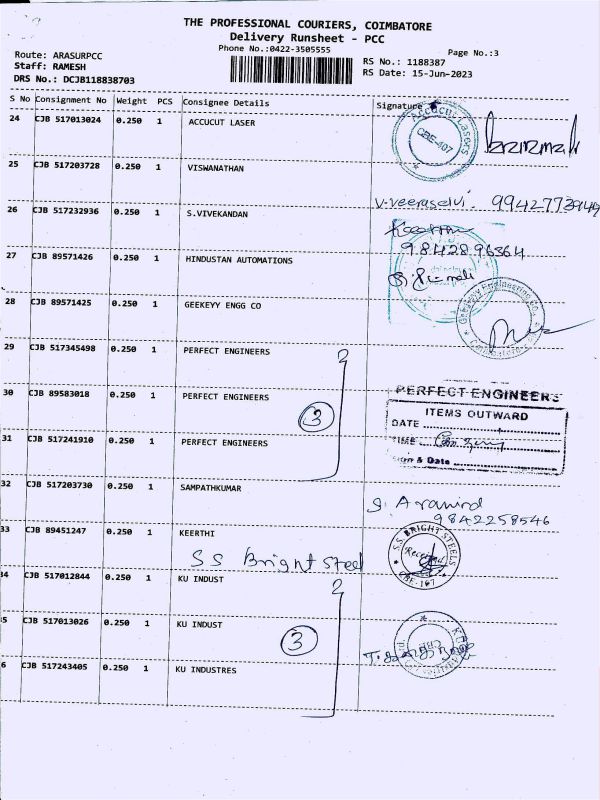 THE PROFESSIONAL COURIERS, COIMBATORE
Delivery Runsheet - PCC
Phone No.:0422-3505555
Page No.:3
Route: ARASURPCC
RS No.: 1188387
Staff: RAMESH
RS Date: 15-Jun-2023
DRS No.: DCJB118838703
S No Consignment No Weight PCS Consignee Details Signature
24 CJB 517013024 0.250 1 ACCUCUT LASER
Accucut Lasers
CBE-407
25 CJB 517203728 0.250 1 VISWANATHAN
V.Veeraselvi. 9942773949
26 CJB 517232936 0.250 1 S.VIVEKANDAN
9842896364
27 CJB 89571426 0.250 1 HINDUSTAN AUTOMATIONS
28 CJB 89571425 0.250 1 GEEKEYY ENGG CO
Geekeyy Engineering Co.
Coimbatore
29 CJB 517345498 0.250 1 PERFECT ENGINEERS
30 CJB 89583018 0.250 1 PERFECT ENGINEERS
3
PERFECT ENGINEERS
ITEMS OUTWARD
DATE
TIME
Sign & Date
31 CJB 517241910 0.250 1 PERFECT ENGINEERS
32 CJB 517203730 0.250 1 SAMPATHKUMAR
S. Aravind
9842258546
33 CJB 89451247 0.250 1 KEERTHI
S S Bright Steel
S.S. BRIGHT STEELS
Received
CBE-107
34 CJB 517012844 0.250 1 KU INDUST
5 CJB 517013026 0.250 1 KU INDUST
3
6 CJB 517243405 0.250 1 KU INDUSTRES